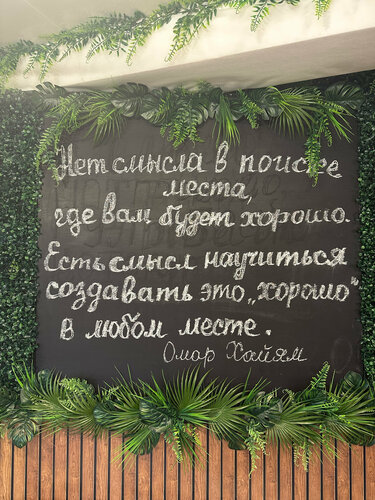 Нет смысла в поиске
места,
где вам будет хорошо.
Есть смысл научиться
создавать это „хорошо"
в любом месте.
Омар Хайям